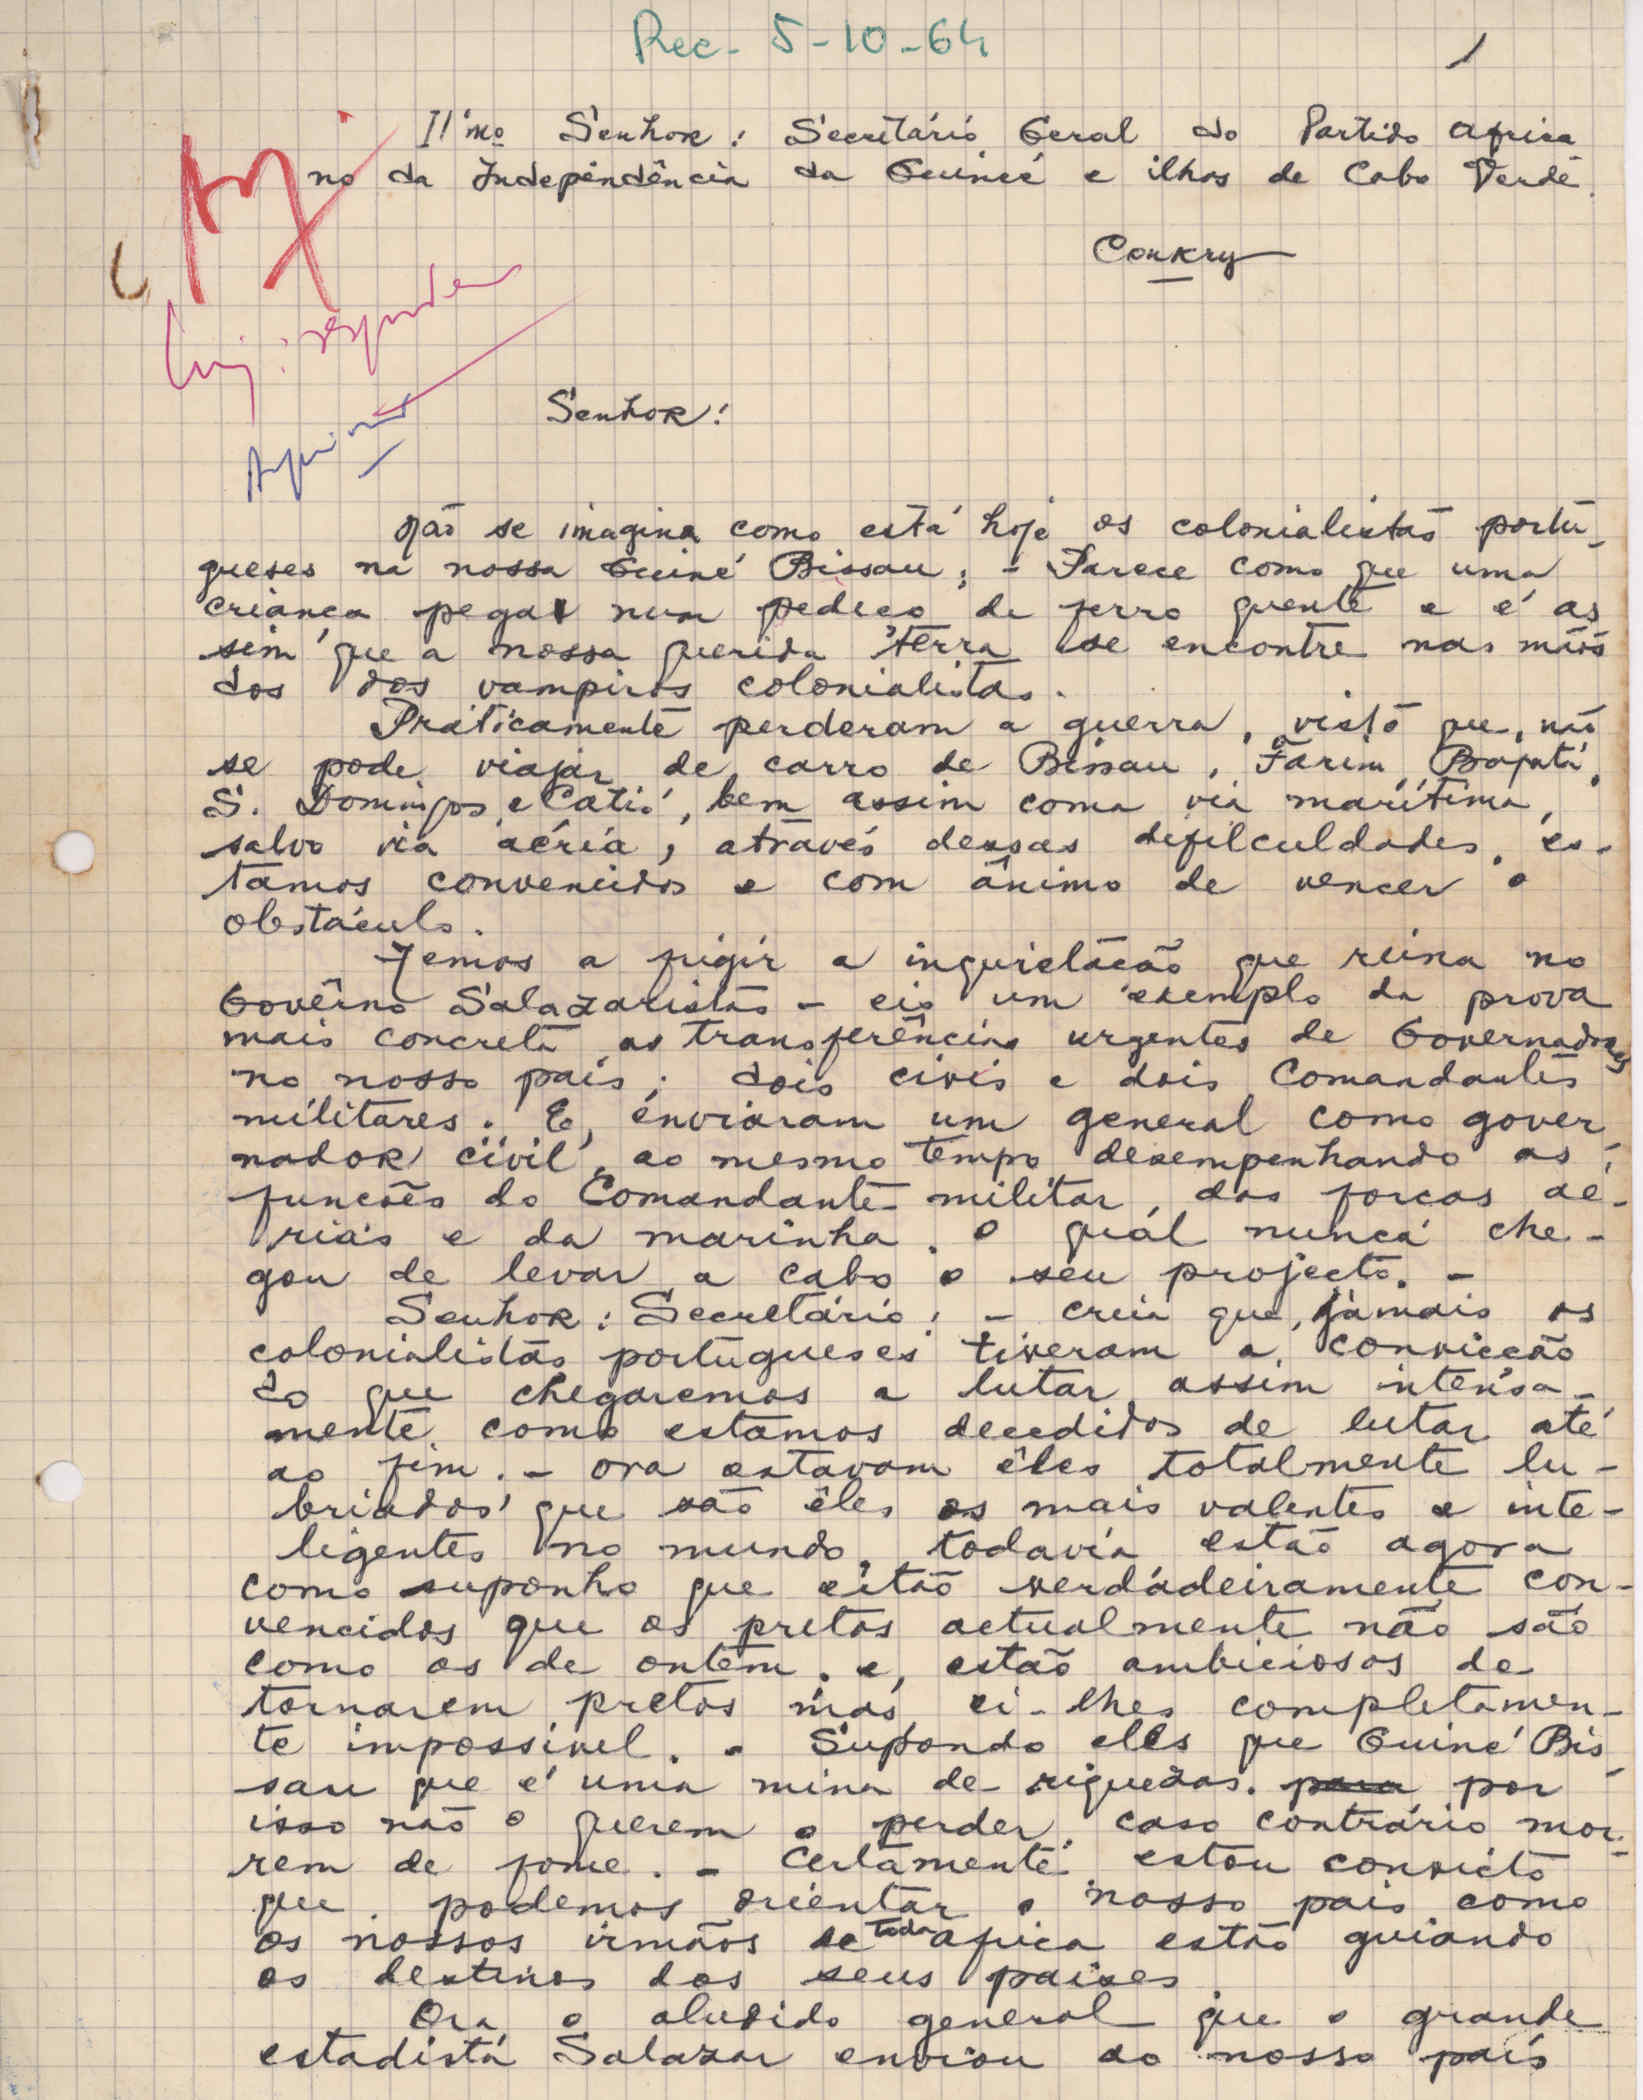 Rec- 5-10-64
1
Il'mo Senhor: Secretário Geral do Partido Africa
no da Independência da Guiné e ilhas de Cabo Verde.
Conkry
responder
Senhor!
Não se imagina como está hoje os colonialistas portu-
gueses na nossa Guiné Bissau; - Parece como que uma
criança pegar num pedeço de ferro quente e é as
sim que a nossa querida terra se encontre nas mãos
dos dos vampiros colonialistas.
Práticamente perderam a guerra, visto que, não
se pode viajar de carro de Bissau, Farim, Bafatá,
S. Domingos e Catió, bem assim coma via marítima,
salvo via aéria, através dessas defilculdades, es-
tamos convencidos e com ânimo de vencer o
obstáculo.
Temos a frigir a inquietação que reina no
Govêrno Salazaristas - eis um exemplo da prova
mais concreta as transferências urgentes de Governadores
no nosso pais; dois civis e dois Comandantes
militares. E, enviaram um general como gover
nador civil, ao mesmo tempo desempenhando as
funcões do Comandante militar, das forcas aé-
rias e da marinha. o qual nunca che-
gou de levar a cabo o seu projecto. -
Senhor: Secretário: - creia que, jamais os
colonialistas portugueses tiveram a convicção
do que chegaremos a lutar assim intensa-
mente como estamos decedidos de lutar até
ao fim. - ora estavam êles totalmente lu-
briados que são êles os mais valentes e inte-
ligentes no mundo, todavia estão agora
como suponho que estão verdadeiramente con-
vencidos que os pretos actualmente não são
como os de ontem. e, estão ambiciosos de
tornarem pretos mas ei-lhes completamen-
te impossivel. - Supondo eles que Guiné Bis
sau que é uma mina de riquezas. para por
isso não o querem o perder, caso contrário mor-
rem de fome. - Certamente estou convicto
que podemos orientar o nosso pais como
os nossos irmãos de toda africa estão guiando
os destinos dos seus paises
Ora o aludido general que o grande
estadista Salazar enviou ao nosso país